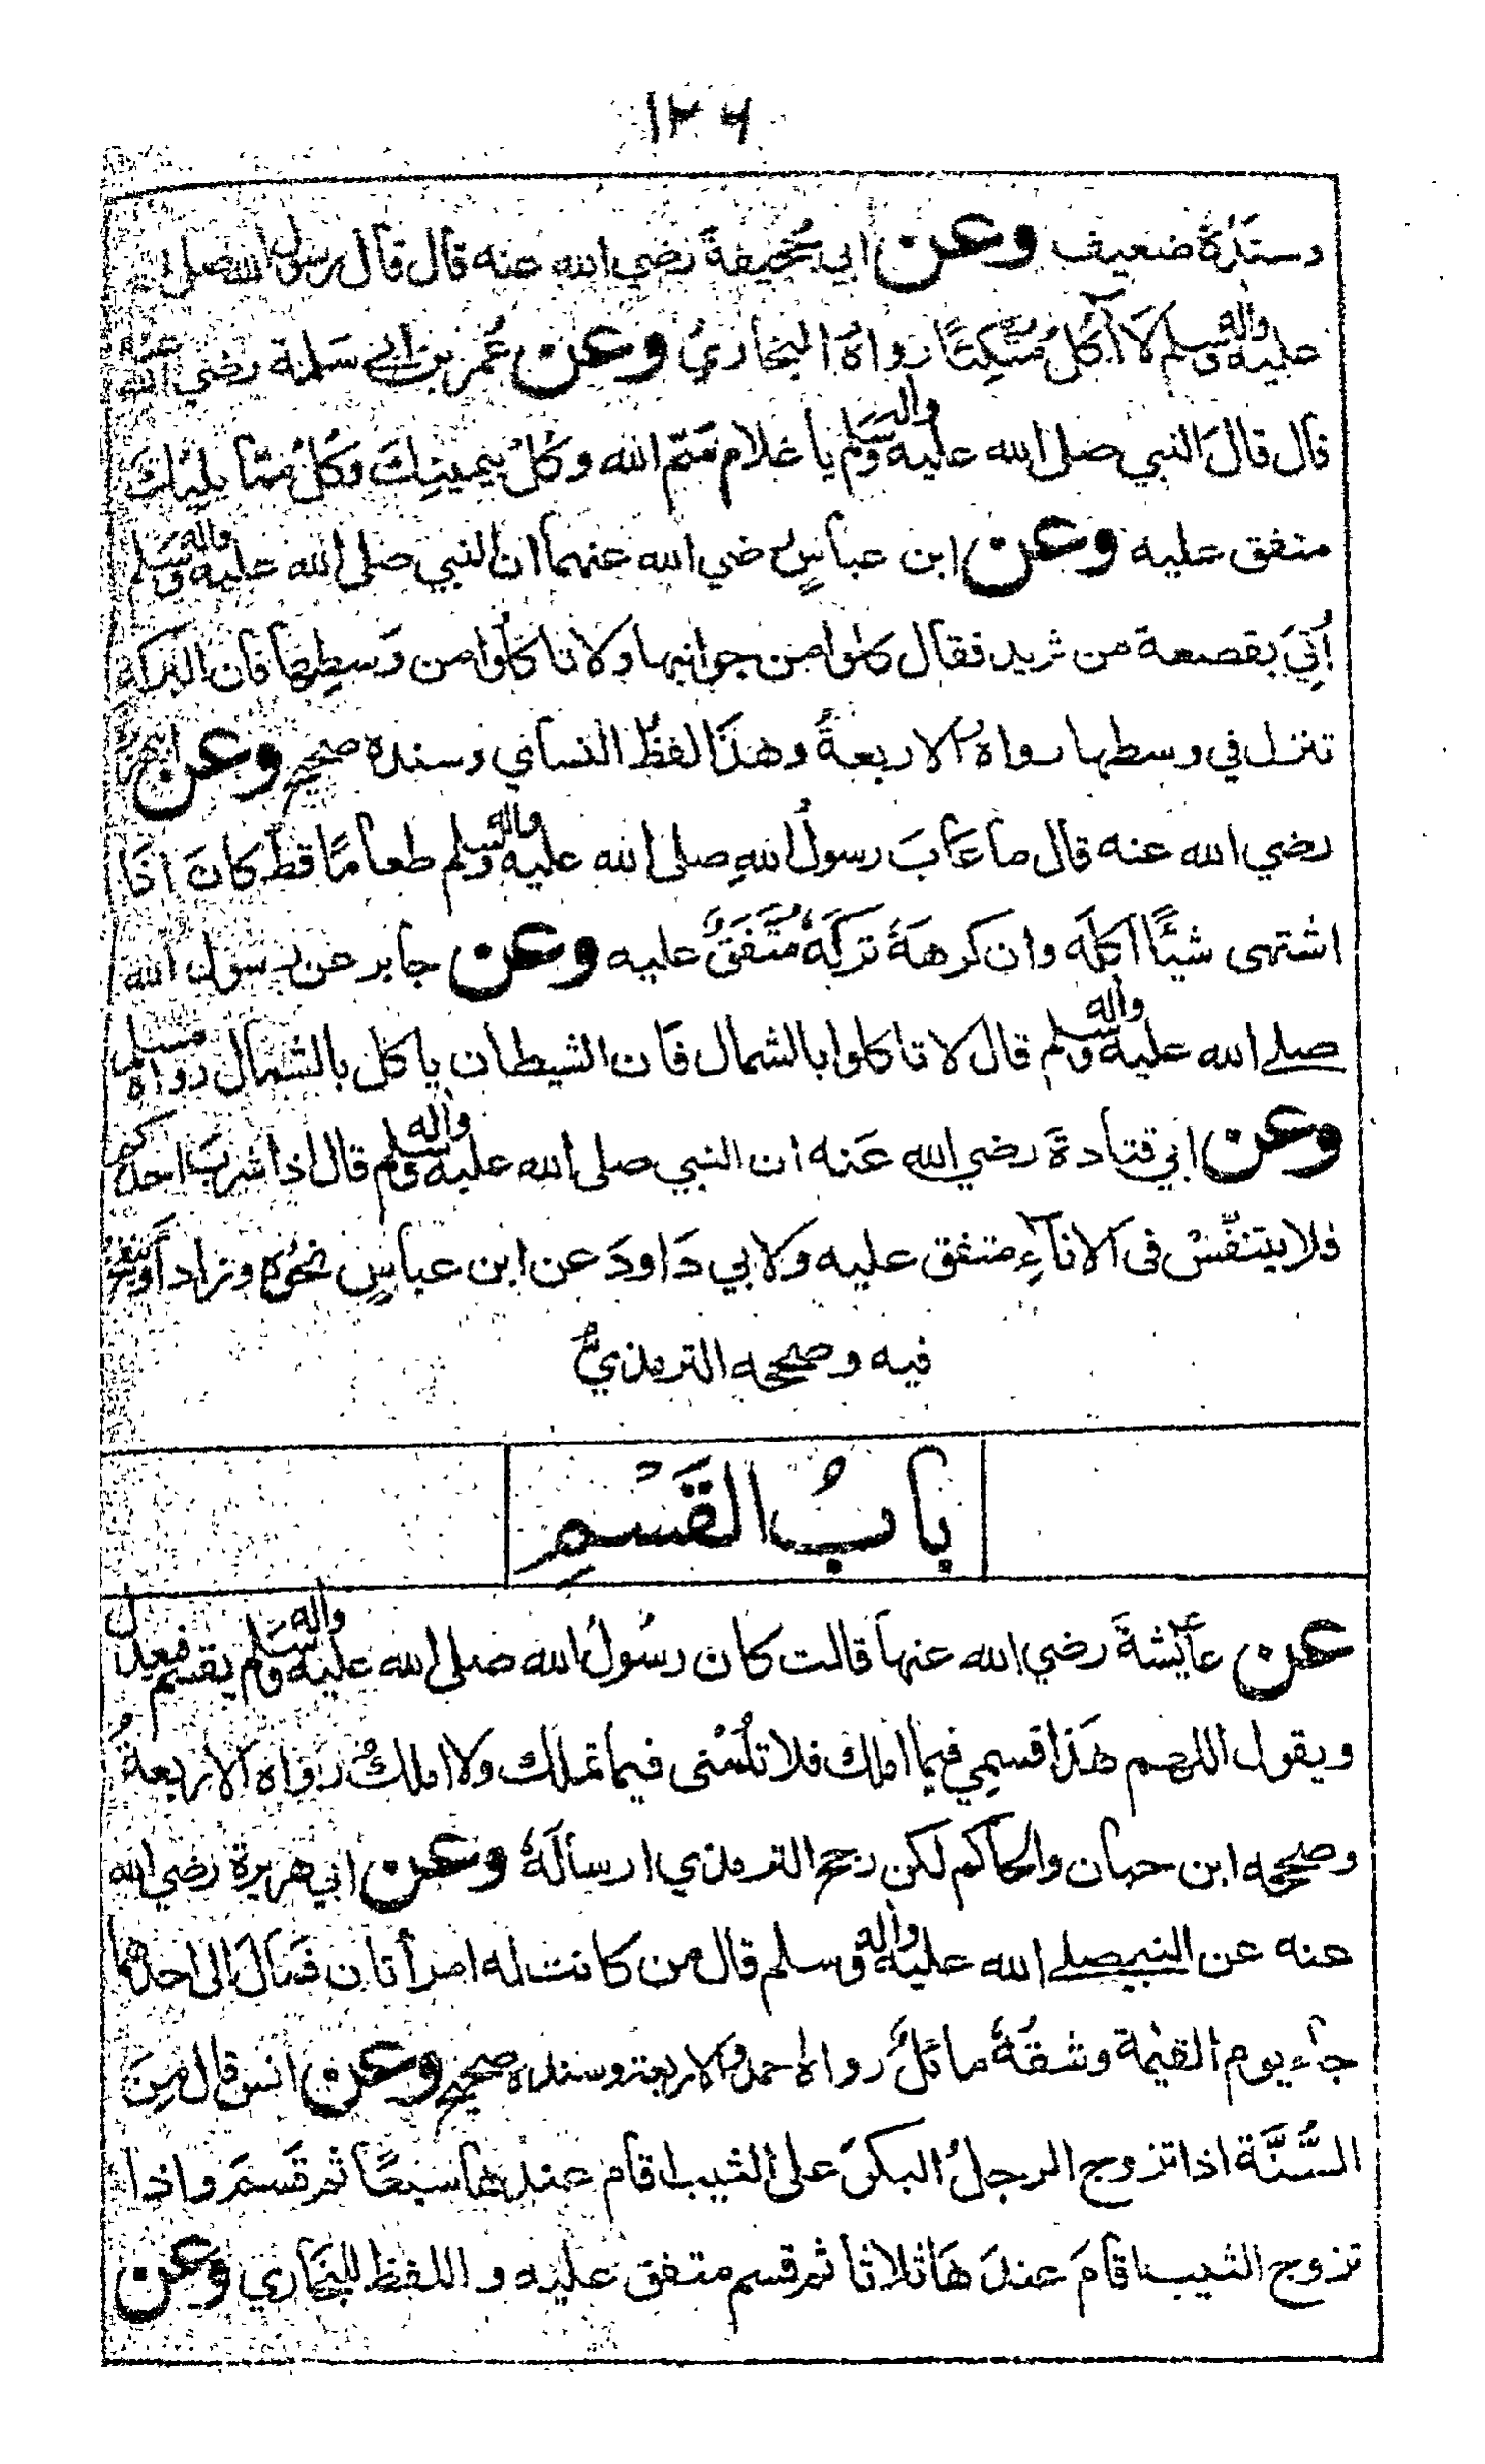 ١٢٦
وسنَدُهُ ضعيف وعن ابي جُحَيفةَ رضي الله عنه قال قال رسول الله صلى
عليه وآله وسلم لَا آكُلُ مُتَّكِئًا رَوَاهُ البخاريُ وعن عُمَر بن ابي سَلمة رضي الله عنه
قال قالَ النبي صلى الله عليه وآله وسلم يا غلام سَمّ الله وكُلْ بِيمينِكَ وكُلْ ممّا يليكَ
متفق عليه وعن ابن عباسٍ رضي الله عنهما ان النبي صلى الله عليه وآله وسلم
أُتِيَ بقصعة من ثريد فقال كلوا من جوانبها ولا تاكلوا من وَسطِها فان البركة
تنزل في وسطها رواه الاربعةُ وهذَا لفظُ النساي وسنده صحيح وعن ابي هريرة
رضي الله عنه قال ما عَابَ رسولُ اللهِ صلى الله عليه وآله وسلم طعامًا قط كانَ اذا
اشتهى شيئًا اكلَه وان كرهَهُ تركَهُ مُتَّفَقٌ عليه وعن جابر عن رسول الله
صلى الله عليه وآله وسلم قال لا تاكلوا بالشمال فان الشيطان ياكل بالشمال رواه مسلم
وعن ابي قتادةَ رضي الله عَنه ان النبي صلى الله عليه وآله وسلم قال اذا شربَ احدكم
فلا يتنفّسْ في الاناءِ متفق عليه ولابي دَاودَ عن ابن عباسٍ نحوُه وزاد أو ينفخ
فيه وصححه الترمذيُّ
بابُ القَسْمِ
عن عايشةَ رضي الله عنها قالت كان رسُولُ الله صلى الله عليه وآله وسلم يقسم فيعدل
ويقول اللهم هَذا قسمِي فيما املك فلا تلُمْنى فيما تملك ولا املكُ رَوَاه الاربعةُ
وصححه ابن حبان والحاكم لكن رجح الترمذي ارسالَهُ وعن ابي هريرة رضي الله
عنه عن النبي صلى الله عليه وآله وسلم قال من كانت له امرأتان فمَالَ الى احداهما
جاء يوم القيمة وشقُهُ مائلٌ رواه احمد والاربعة وسنده صحيح وعن انس قال مِنَ
السُّنَّة اذا تزوج الرجلُ البكرَ على الثيب اقام عندها سَبعًا ثم قَسَمَ واذا
تزوج الثيب اقامَ عندَهَا ثلاثا ثم قسم متفق عليه واللفظ للبخاري وعن